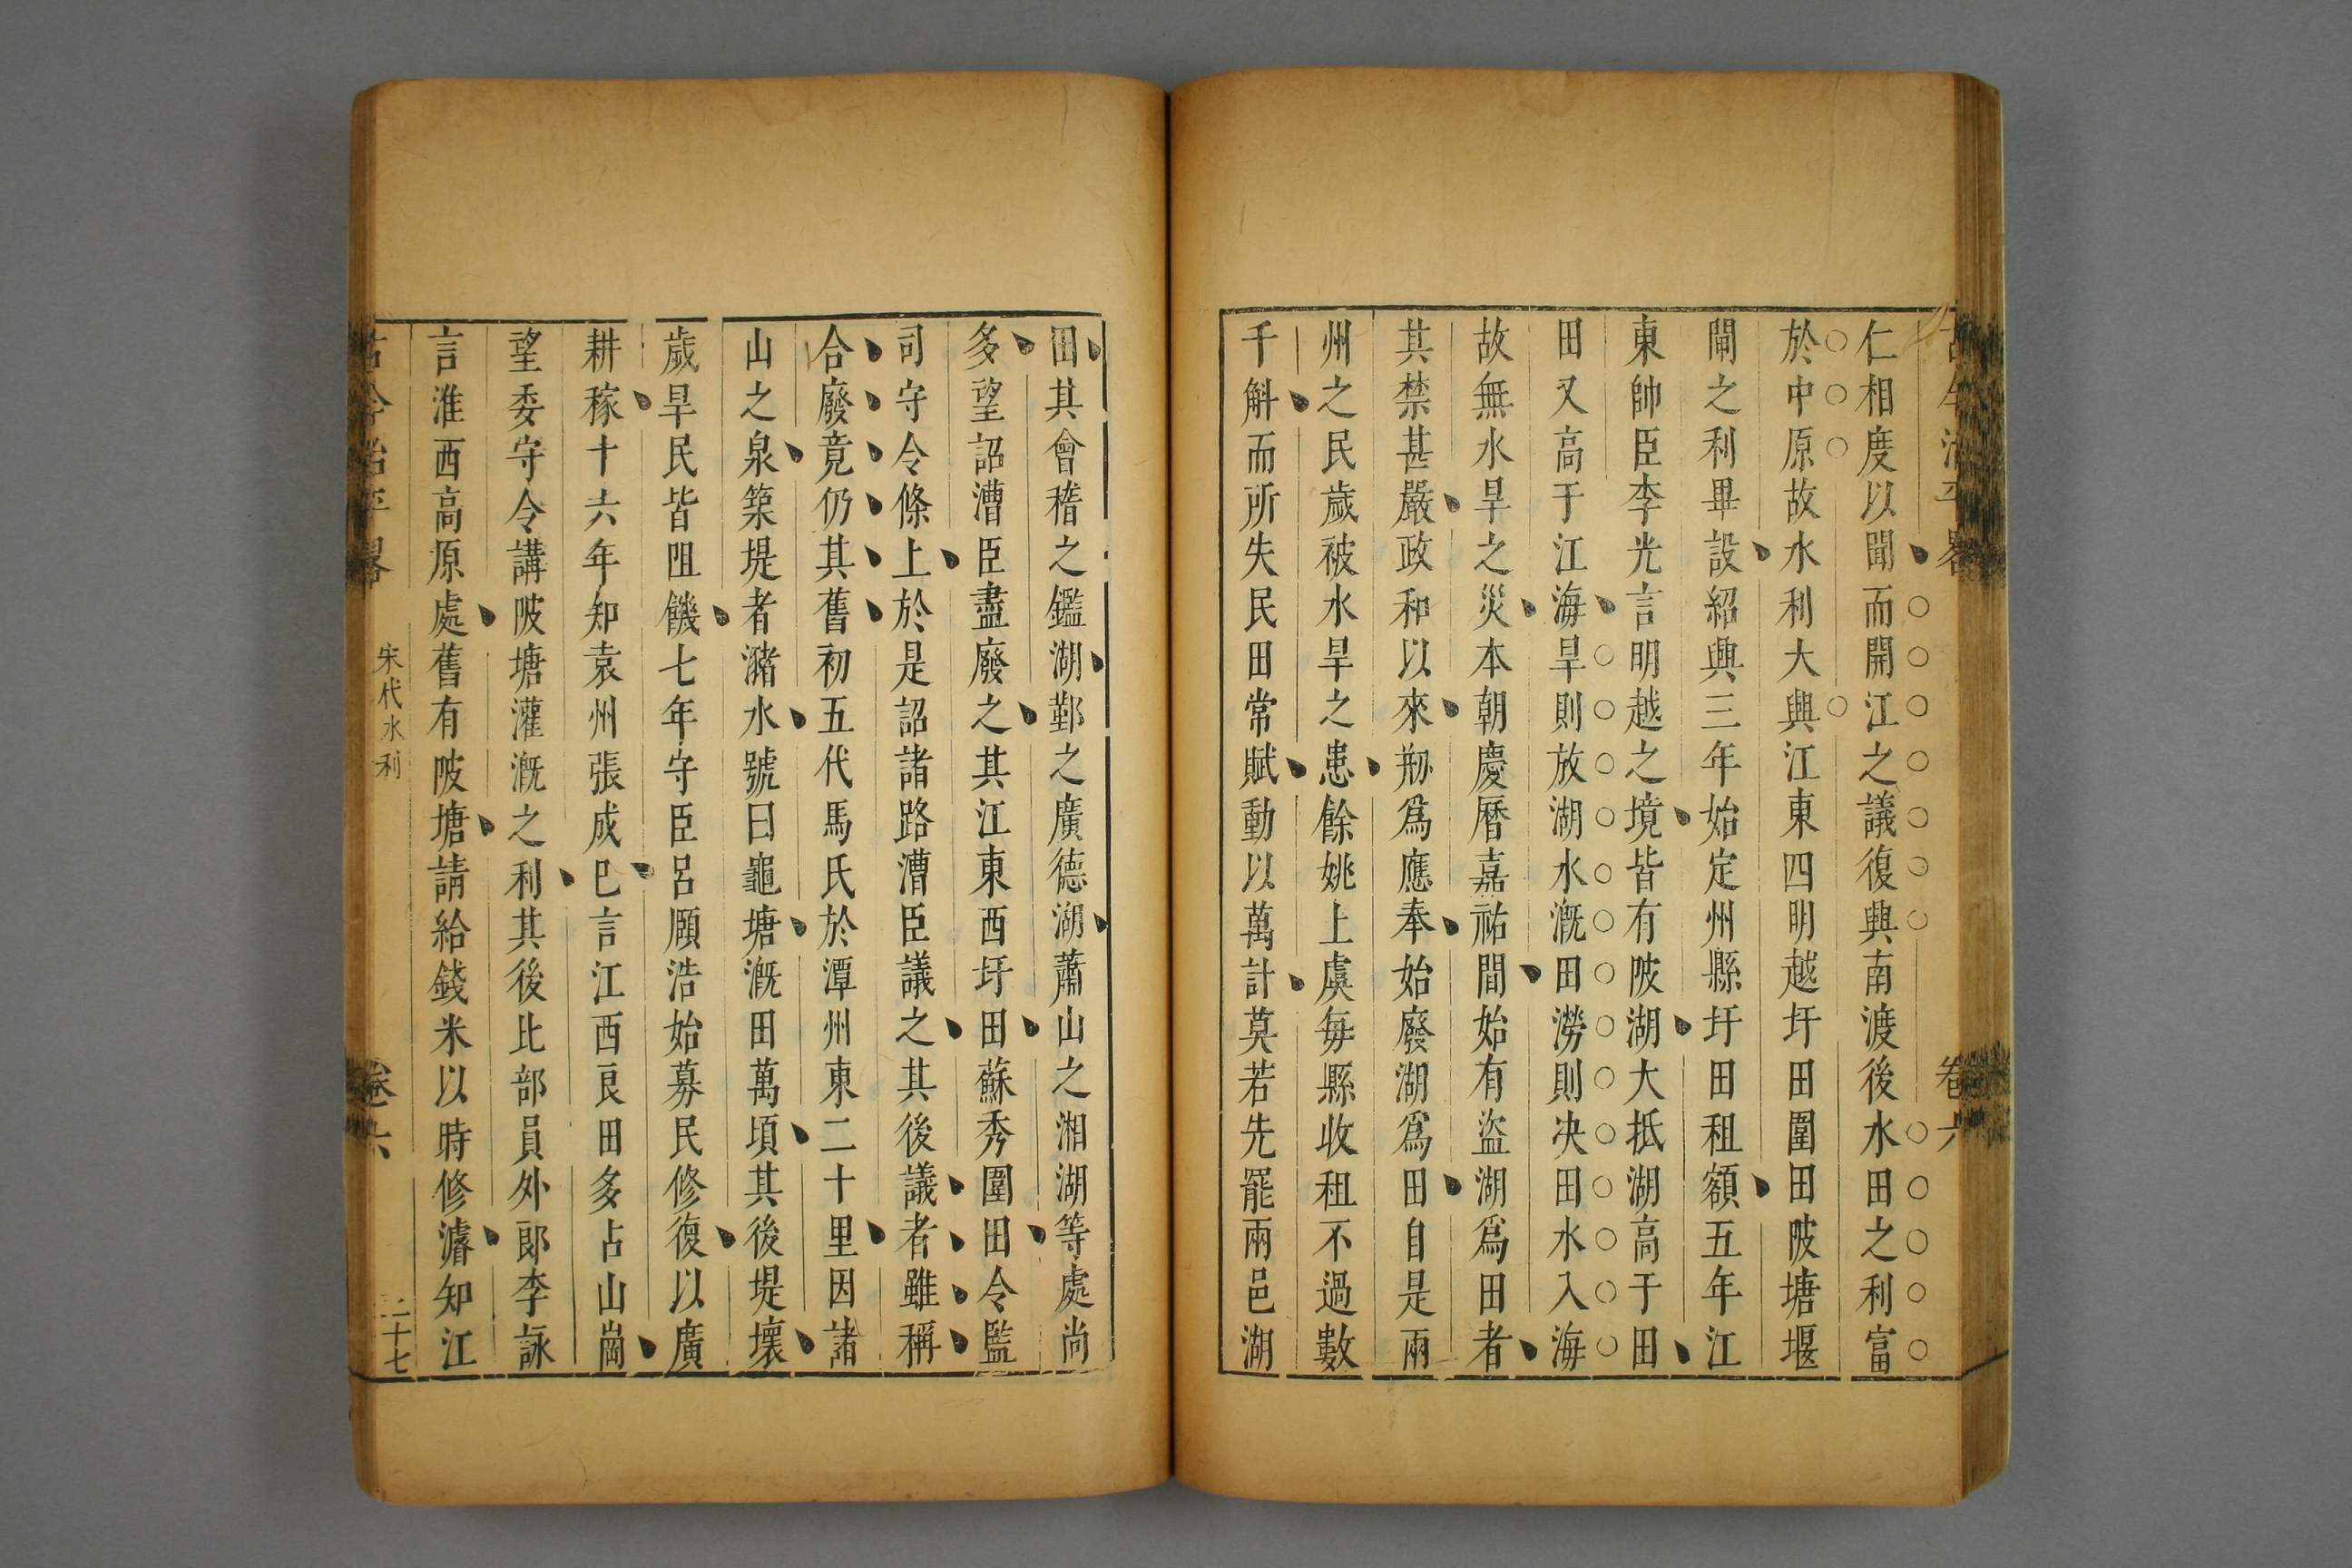 古今治平畧 卷六
仁相度以聞而開江之議復興南渡後水田之利富
於中原故水利大興江東四明越圩田圍田陂塘堰
閘之利畢設紹興三年始定州縣圩田租額五年江
東帥臣李光言明越之境皆有陂湖大抵湖高于田
田又高于江海旱則放湖水溉田澇則决田水入海
故無水旱之災本朝慶曆嘉祐間始有盜湖爲田者
其禁甚嚴政和以來剏爲應奉始廢湖爲田自是兩
州之民歲被水旱之患餘姚上虞每縣收租不過數
千斛而所失民田常賦動以萬計莫若先罷兩邑湖
田其會稽之鑑湖鄞之廣德湖蕭山之湘湖等處尚
多望詔漕臣盡廢之其江東西圩田蘇秀圍田令監
司守令條上於是詔諸路漕臣議之其後議者雖稱
合廢竟仍其舊初五代馬氏於潭州東二十里因諸
山之泉築堤者瀦水號曰龜塘溉田萬頃其後堤壞
歲旱民皆阻饑七年守臣呂頤浩始募民修復以廣
耕稼十六年知袁州張成巳言江西良田多占山崗
望委守令講陂塘灌溉之利其後比部員外郎李詠
言淮西高原處舊有陂塘請給錢米以時修濬知江
古今治平畧 宋代水利 卷六 二十七